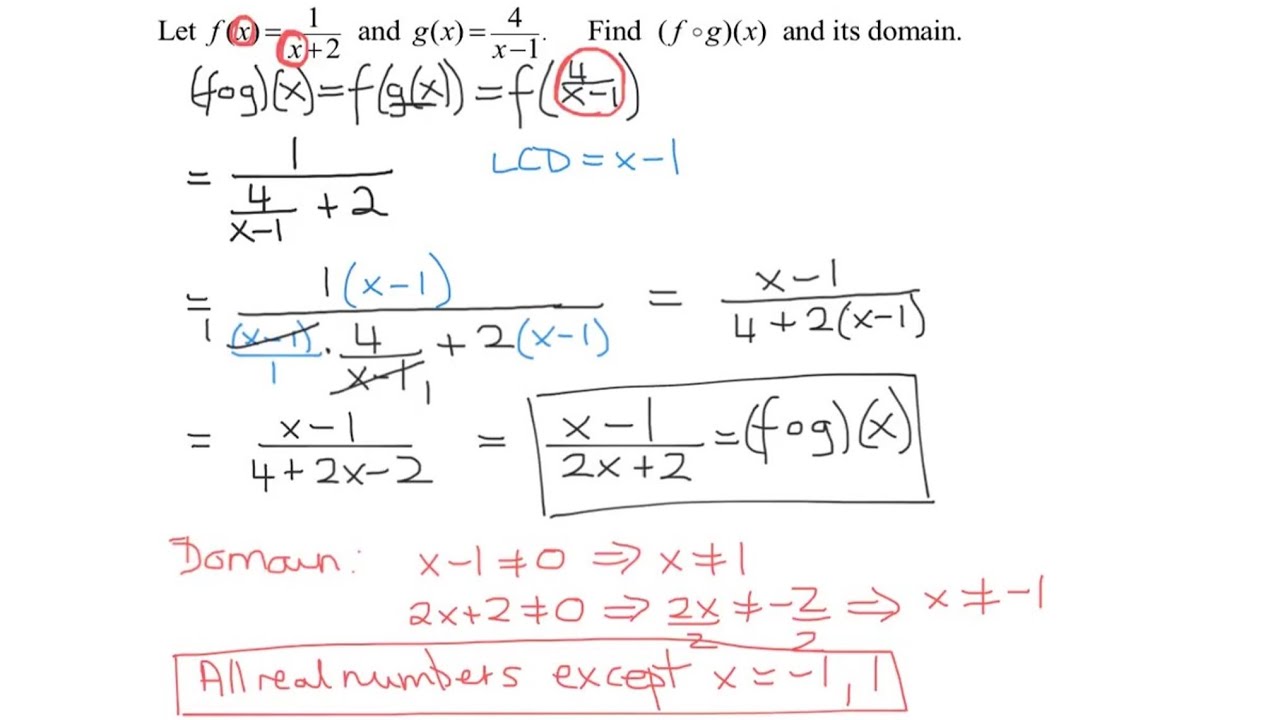 Let f(x)= 1/(x+2) and g(x)= 4/(x−1). Find (f∘g)(x) and its domain.
(fog)(x)=f(g(x))=f(4/(x−1))
= 1/(4/(x−1) + 2) LCD = x−1
= 1(x−1)/((x−1)/1 · 4/(x−1) + 2(x−1)) = (x−1)/(4+2(x−1))
1 1
= (x−1)/(4+2x−2) = (x−1)/(2x+2) =(fog)(x)
Domain: x−1≠0 ⇒ x≠1
2x+2≠0 ⇒ 2x/2 ≠ −2/2 ⇒ x≠−1
All real numbers except x = −1, 1